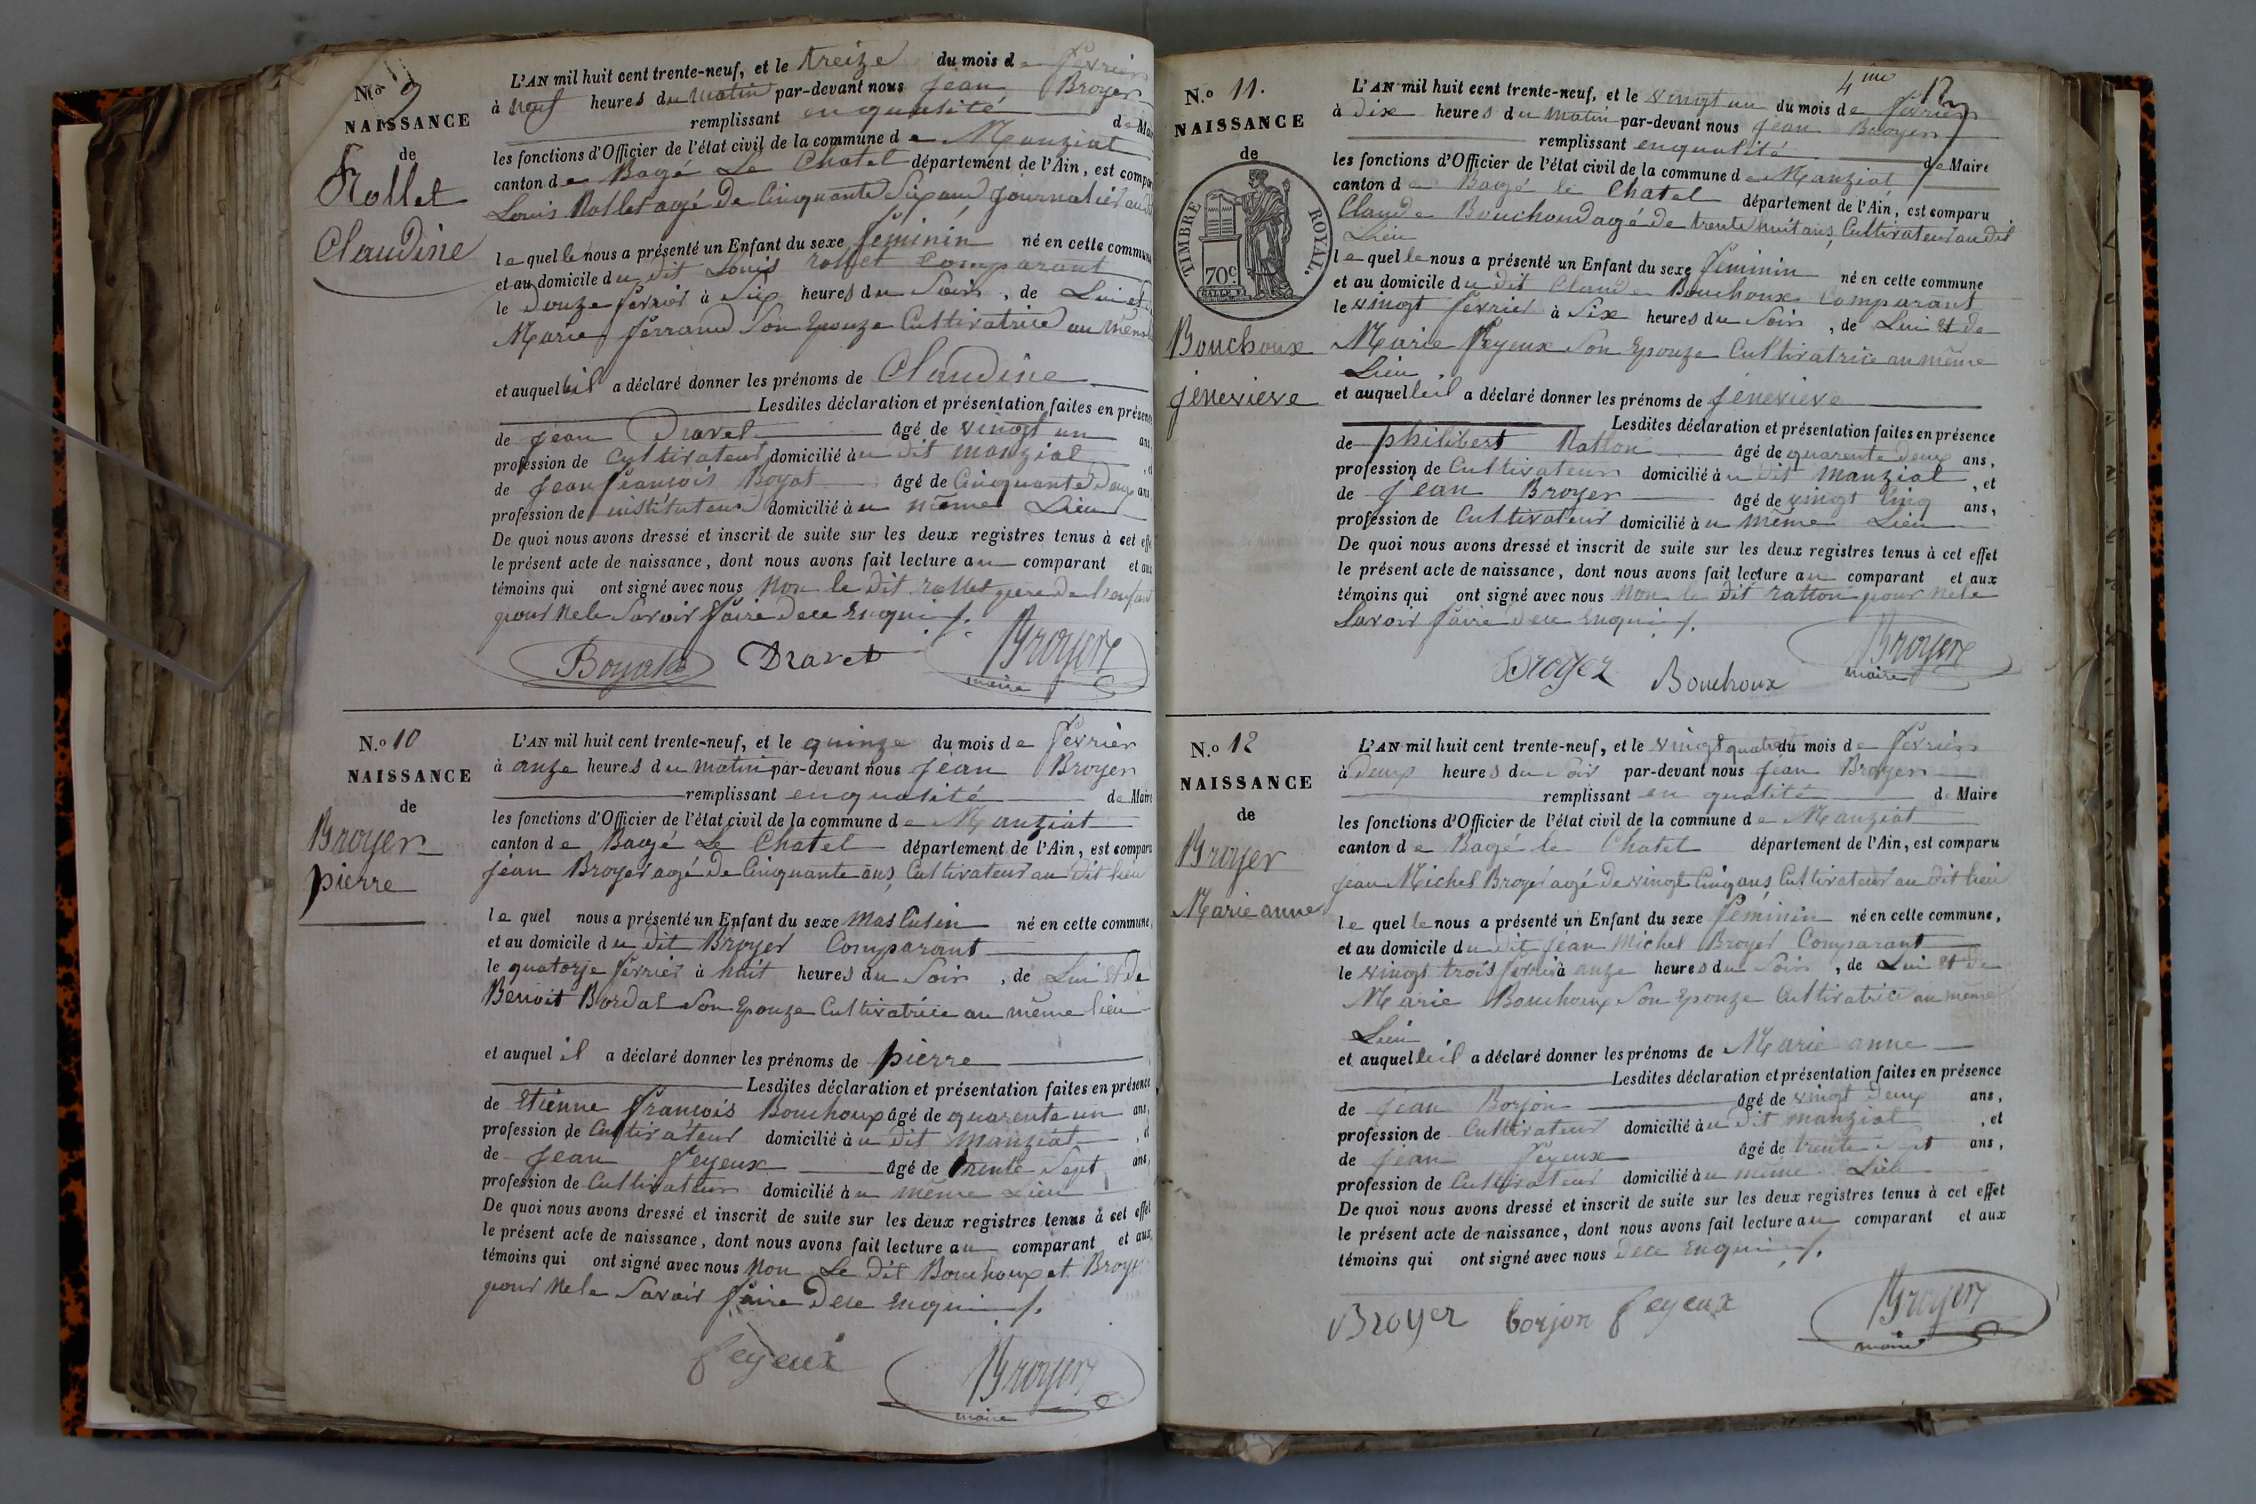 N.o 9
NAISSANCE
de
Rollet
Claudine
L'AN mil huit cent trente-neuf, et le treize du mois de fevrier
à neuf heures du matin par-devant nous jean Broyer
remplissant enqualité de Mai
les fonctions d'Officier de l'état civil de la commune de Manziat
canton de Bagé Le Chatel département de l'Ain, est compar
Louis Rollet agé de Cinquante Six ans journalier au dit
lequel le nous a présenté un Enfant du sexe feminin né en cette commune
et au domicile du dit Louis rollet Comparant
le Douze fevrier à Six heures du Soir, de Lui et
Marie ferrand Son Epouze Cultivatrice au même
et auquelleil a déclaré donner les prénoms de Claudine
Lesdites déclaration et présentation faites en présence
de jean Dravet âgé de vingt un ans
profession de Cultivateur domicilié àu dit manziat, et
de jean françois Boyat âgé de Cinquante Deux ans
profession de instituteur domicilié àu même Lieu
De quoi nous avons dressé et inscrit de suite sur les deux registres tenus à cet effe
le présent acte de naissance, dont nous avons fait lecture au comparant et aux
témoins qui ont signé avec nous Non le dit rollet pere de l'enfant
pour Nele Savoir faire Dece Enquis /.
Boyat Dravet Broyer
maire
N.o 10
NAISSANCE
de
Broyer
pierre
L'AN mil huit cent trente-neuf, et le quinze du mois de fevrier
à onze heures du matin par-devant nous jean Broyer
remplissant enqualité de Maire
les fonctions d'Officier de l'état civil de la commune de Manziat
canton de Bagé Le Chatel département de l'Ain, est comparu
jean Broyer agé de Cinquante ans, Cultivateur au dit lieu
lequel nous a présenté un Enfant du sexe masculin né en cette commune,
et au domicile du dit Broyer Comparant
le quatorze fevrier à huit heures du Soir, de Lui et de
Benoit Bordat Son Epouze Cultivatrice au même lieu
et auquel il a déclaré donner les prénoms de pierre
Lesdites déclaration et présentation faites en présence
de Etienne françois Bouchoux âgé de quarente un ans,
profession de Cultivateur domicilié àu dit manziat, et
de jean feyeux âgé de trente Sept ans,
profession de Cultivateur domicilié àu même Lieu
De quoi nous avons dressé et inscrit de suite sur les deux registres tenus à cet effet
le présent acte de naissance, dont nous avons fait lecture au comparant et aux
témoins qui ont signé avec nous Non Le dit Bouchoux et Broyer
pour Nele Savoir faire Dece Enquis /.
feyeux Broyer
maire
4me 12
N.o 11.
NAISSANCE
de
TIMBRE ROYAL.
70c
Bouchoux
jenevieve
L'AN mil huit cent trente-neuf, et le vingt un du mois de fevrier
à dix heures du matin par-devant nous jean Broyer
remplissant enqualité de Maire
les fonctions d'Officier de l'état civil de la commune de Manziat
canton de Bagé le Chatel département de l'Ain, est comparu
Claude Bouchoud agé de trente huit ans, Cultivateur au dit
Lieu
lequel le nous a présenté un Enfant du sexe feminin né en cette commune
et au domicile du dit Claude Bouchoux Comparant
le vingt fevrier à Six heures du Soir, de Lui et de
Marie feyeux Son Epouze Cultivatrice au même
Lieu.
et auquelleil a déclaré donner les prénoms de jenevieve
Lesdites déclaration et présentation faites en présence
de philibert Ratton âgé de quarente deux ans,
profession de Cultivateur domicilié àu dit manziat, et
de jean Broyer âgé de vingt Cinq ans,
profession de Cultivateur domicilié àu même Lieu
De quoi nous avons dressé et inscrit de suite sur les deux registres tenus à cet effet
le présent acte de naissance, dont nous avons fait lecture au comparant et aux
témoins qui ont signé avec nous Non le dit ratton pour Nele
Savoir faire Dece Enquis /.
Broyer Bouchoux Broyer
maire
N.o 12
NAISSANCE
de
Broyer
Marie anne
L'AN mil huit cent trente-neuf, et le vingt quatre du mois de fevrier
à Deux heures du Soir par-devant nous jean Broyer
remplissant en qualité de Maire
les fonctions d'Officier de l'état civil de la commune de Manziat
canton de Bagé le Chatel département de l'Ain, est comparu
jean Michel Broyer agé de vingt Cinq ans, Cultivateur au dit lieu
lequel le nous a présenté un Enfant du sexe feminin né en cette commune,
et au domicile du dit jean Michel Broyer Comparant
le vingt trois fevrier à onze heures du Soir, de Lui et de
Marie Bouchoux Son Epouze Cultivatrice au même
Lieu
et auquelleil a déclaré donner les prénoms de Marie anne
Lesdites déclaration et présentation faites en présence
de jean Borjon âgé de vingt Deux ans,
profession de Cultivateur domicilié àu dit manziat, et
de jean feyeux âgé de trente Sept ans,
profession de Cultivateur domicilié àu même Lieu
De quoi nous avons dressé et inscrit de suite sur les deux registres tenus à cet effet
le présent acte de naissance, dont nous avons fait lecture au comparant et aux
témoins qui ont signé avec nous Dece Enquis /.
Broyer borjon feyeux Broyer
maire